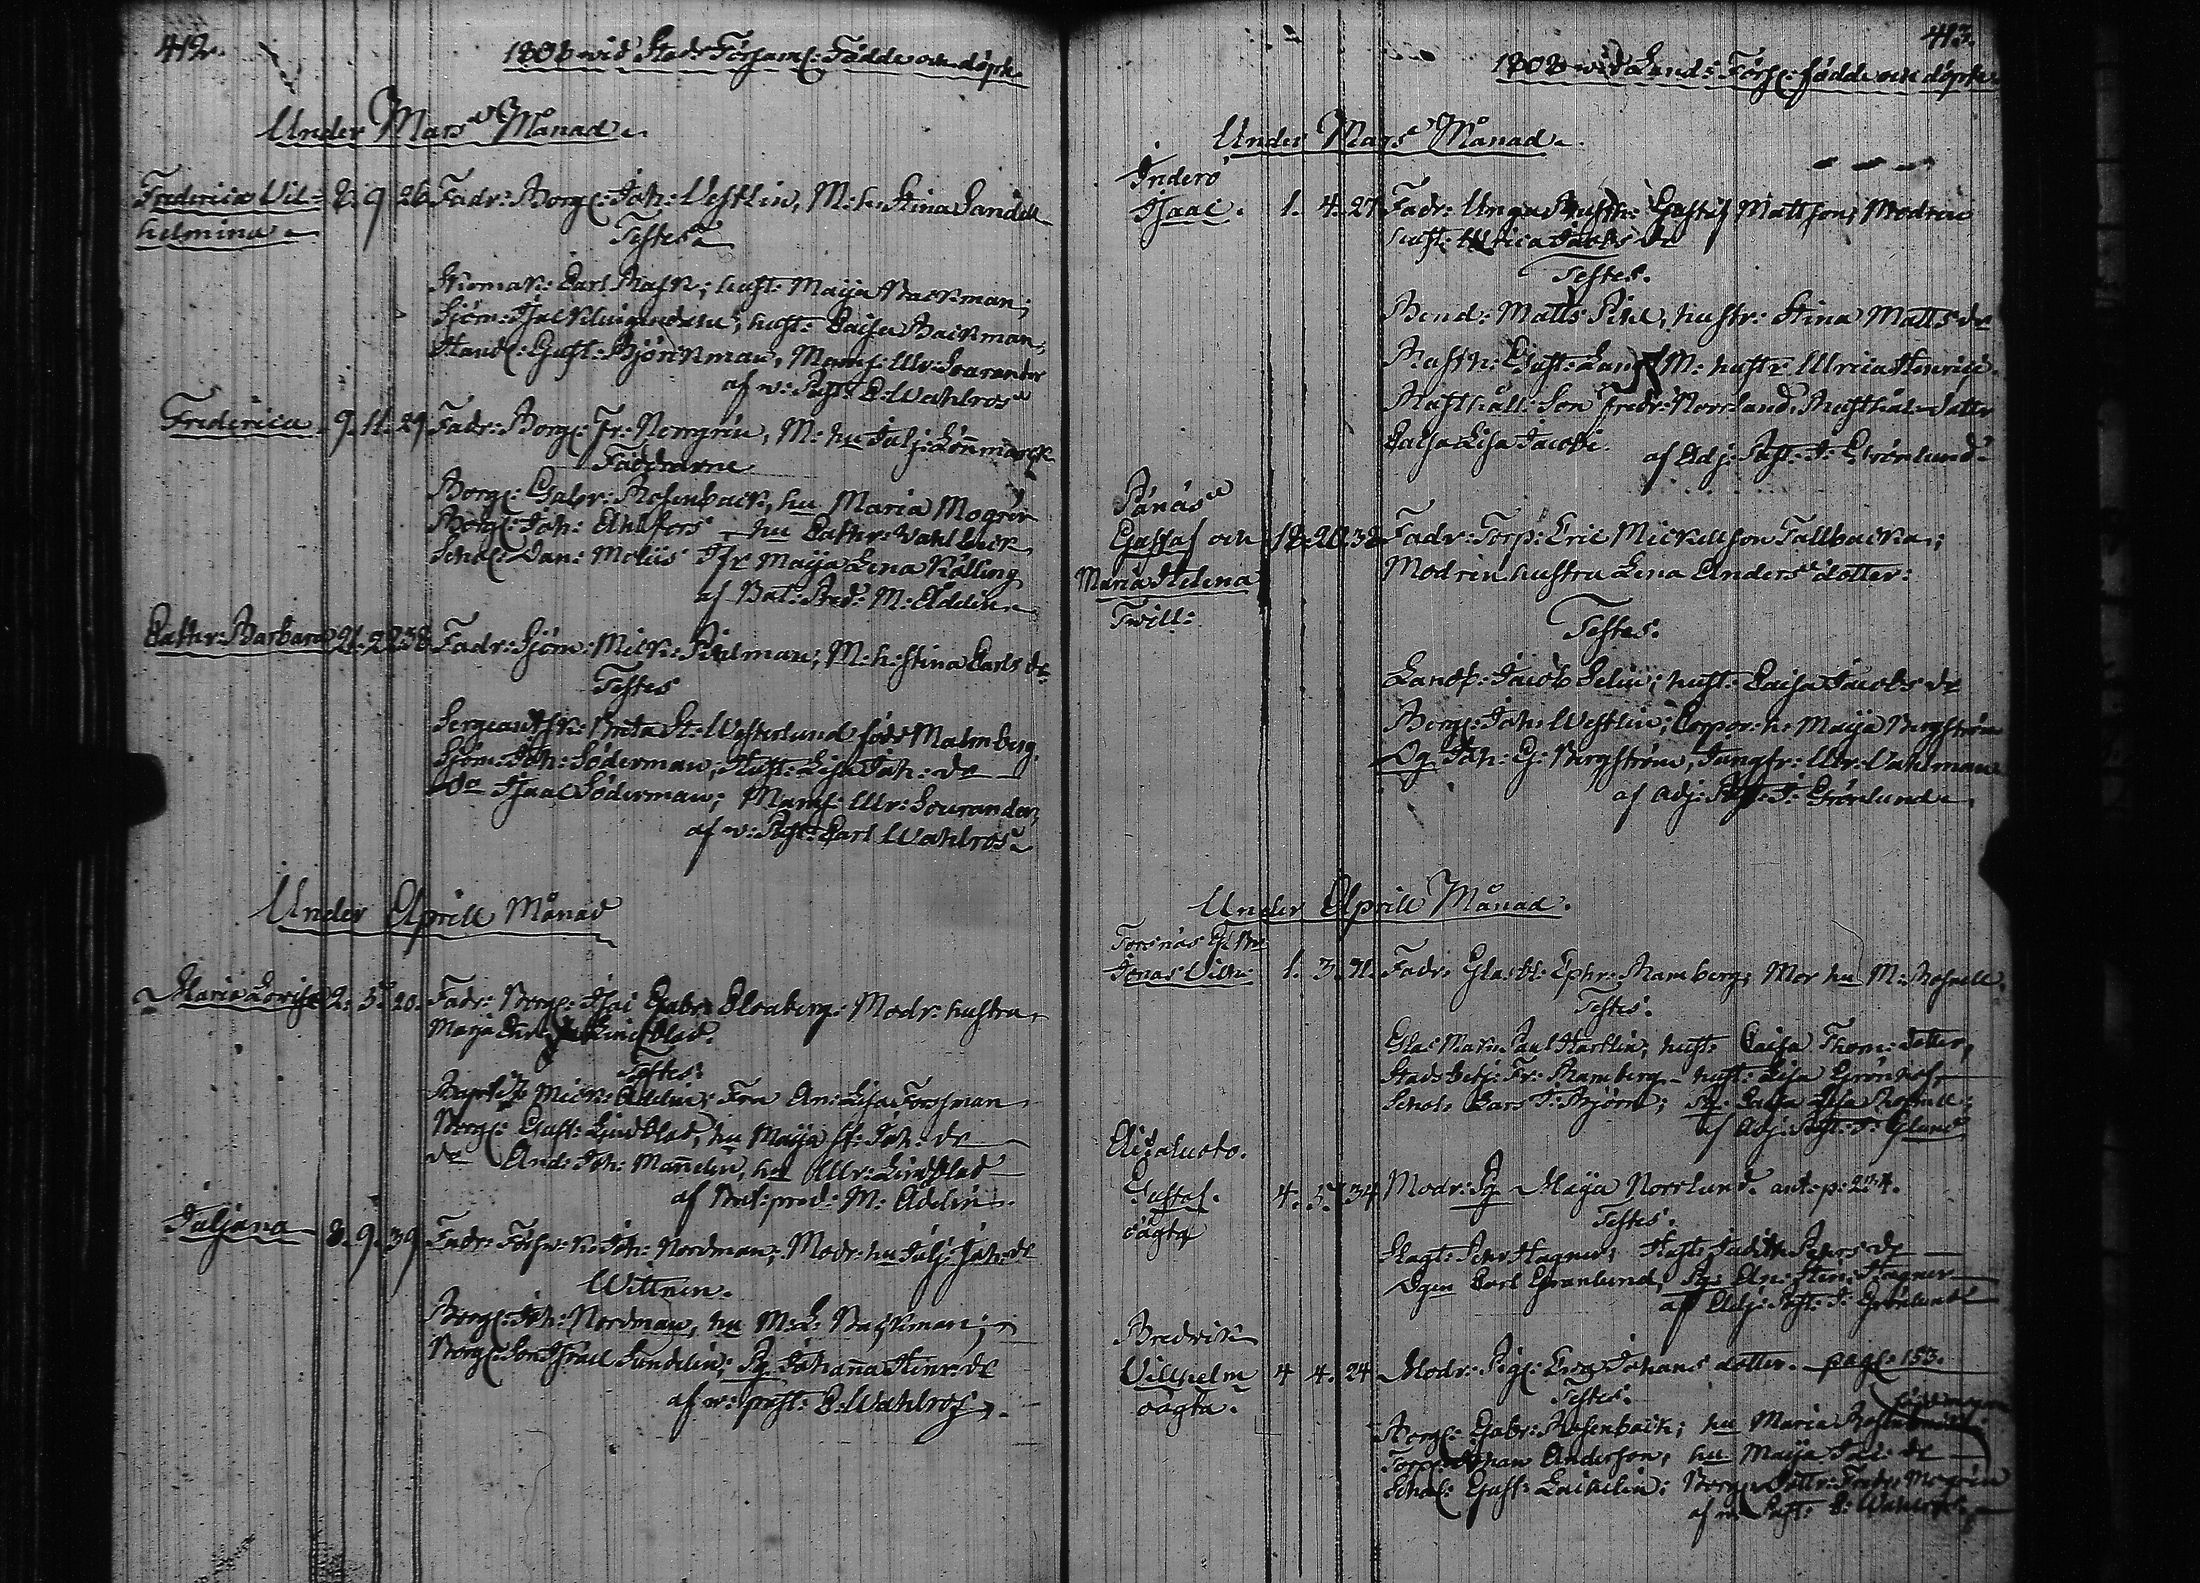 412.
1808 wid Stads Församl: Födde och döpte
Under Mars Månad
Frederica Vil= 8. 9 26 Fadr: Borg: Joh: Westlin, M: h: Stina Sandell
helmina
Testes
Carl Rask; hust: Maija Backman;
Sjöm: Isac hust: Caisa Backman,
Handl: Gust: Björkman, Mams: Ulr: Sourander
af v: Past: C: Wahlros
Frederica 9. 11. 29 Fadr: Borg: Fr: Norrgrén, M: hu Julj: Lönmarck
Faddrarne
Borg: Gabr: Rosenback, hu Maria Mogrén
Borg: Joh: Ahlfors hu Cathr: Wahlbeck
Schol: Dan: Moliis Jfr Maija Lena Kölling
af Bat: Pred: M: Adelin
Cathr: Barbara 21. 22. 38 Fadr: Sjöm: Mick: M: h: Stina Carls dr
Testes
Sergeants h: Brita St: Westerlund född Malmberg
Sjöm: Joh: Söderman, Hust: Lisa Joh: dr
do Isaac Söderman; Mams: Ulr: Sourander,
af v: Past: Carl Wahlros
Under Aprill Månad
Maria Lovisa 2. 5. 20. Fadr: Borg: Isai Gabr: Cloaberg: Modr: hustru
Maja Lindblad.
Testes:
Mick: Adelin; Fru An: Lisa Forsman
Borg: Gust: Lindblad, hu Maija St: Joh: dr
do And: Joh: Mannelin, hu Ulr: Lindblad
af Bat: pred: M: Adelin
Juljana 8. 9. 39 Fadr: Joh: Nordman; Modr: hu Julj: Joh: dr
Wittnen.
Borg: Joh: Nordman, hu M: L: Backman;
Borg: Son Israel Sundelin; Pig: Johanna Henr: dr
af v: past: C: Wahlros
413.
1808 wid Lands Förs: födde och döpte
Under Mars Månad
Inderö
Isaac. 1. 4. 27 Fadr: Unga Gustaf Mattson; Modren
hust: Ulrica Jacobs dr
Testes.
Bond: Matts hustr: Stina Matts dr
Rusth: Gust: M: hustr: Ulrica Henrics
Rusthåll: Son Fredr: Norrlund, Rusthål: dotter
Caisa Lisa Jacobs.
af Adj: Past: J: Grönlund
Pånäs
Gustaf och 18. 20. 38 Fadr: Torp: Eric Mickelsson Tallbacka;
Maria Helena Modren hustru Lena Anders dotter:
Twill:
Testes.
Landb: Jacob Selin; hust: Caisa Jacobs dr
Borg: Joh: Westlin; Corpor: h: Maija Bergström
Dg Joh: G: Bergström, Jungfr: Ulr: Vahlman
af Adj: Past: J: Grönlund
Under Aprill Månad.
Torsnäs Gl: Br
Jonas Vilh: 1. 3. 31. Fadr: Glasbl: Ephr: Ramberg, Mor hu M: Rosnell.
Testes.
Glas Mak: Paul Harlin; hust: Caisa Thom: dotter,
Stads Betj: Fr: Ramberg hust: Lisa Grönhol
Schol: Lars J: Björn; Pig: Caisa Lisa Rosnell;
af Adj: Past: J: Glund
Alisaluoto.
Gustaf. 4. 5. 34 Modr: Pig Maija Norrlund. ant: p: 234.
oägta
Testes.
Hagner; Hust: Judith Pehrs dr
Dgen Carl Granlund, Pig: An: Stin: Hagner
af Adj: Past: J: Grönlund
Bredvik
Vilhelm 4 4. 24 Modr: Pig: Eva Johans dotter. pag: 153.
oägta.
Testes.
Borg: Gabr: Rosenback; hu Maria
Johan Anderson, hu Maija
Schol: Gust: Borg: Dotter: Fredr: Mogrén
af v: Past: C: Wahlros